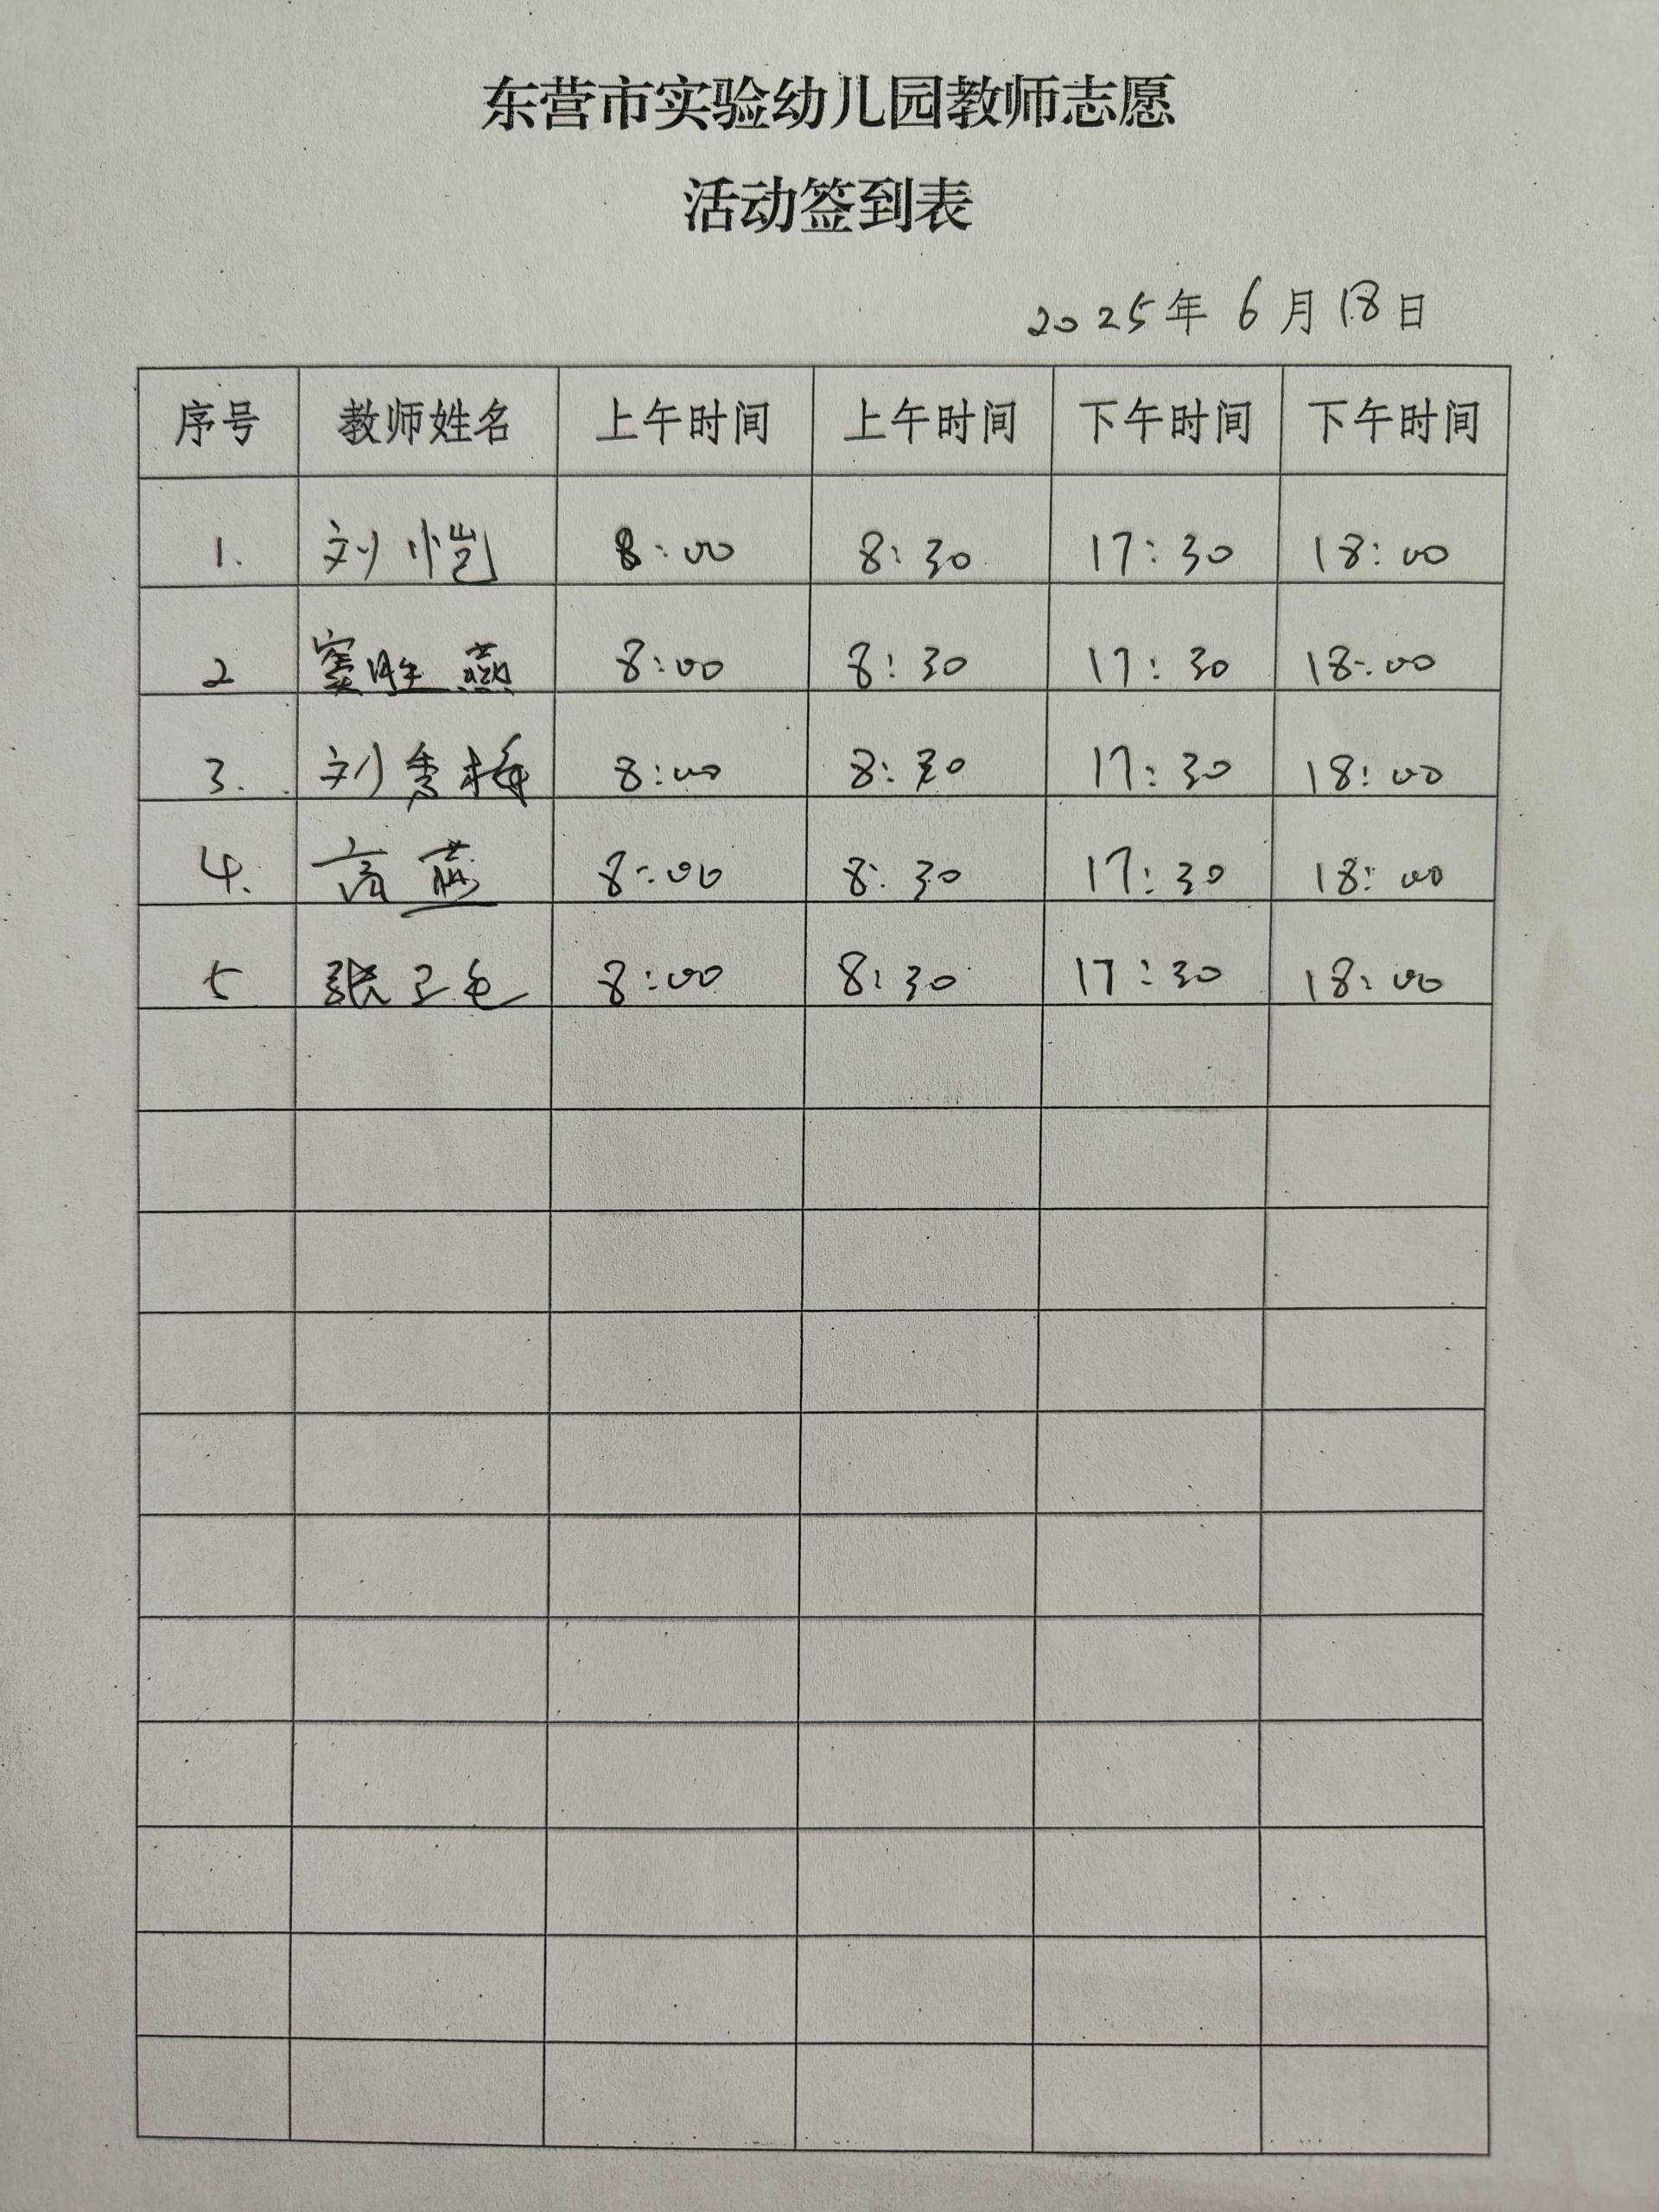 东营市实验幼儿园教师志愿
活动签到表
2025年 6月18日
序号 教师姓名 上午时间 上午时间 下午时间 下午时间
1. 刘恺 8:00 8:30 17:30 18:00
2 窦胜燕 8:00 8:30 17:30 18:00
3. 刘秀梅 8:00 8:30 17:30 18:00
4. 高燕 8:00 8:30 17:30 18:00
5 张 8:00 8:30 17:30 18:00